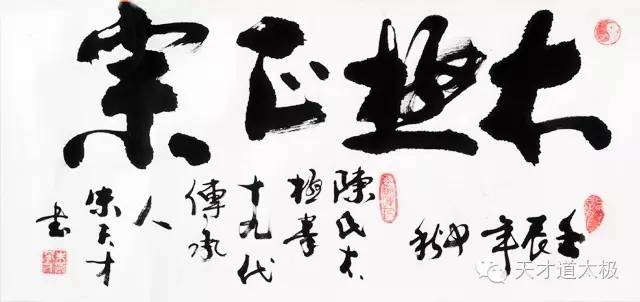 太極正宗
壬辰年中秋
陳氏太
極拳
十九代
傳承
人
朱天才
書
天才道太极